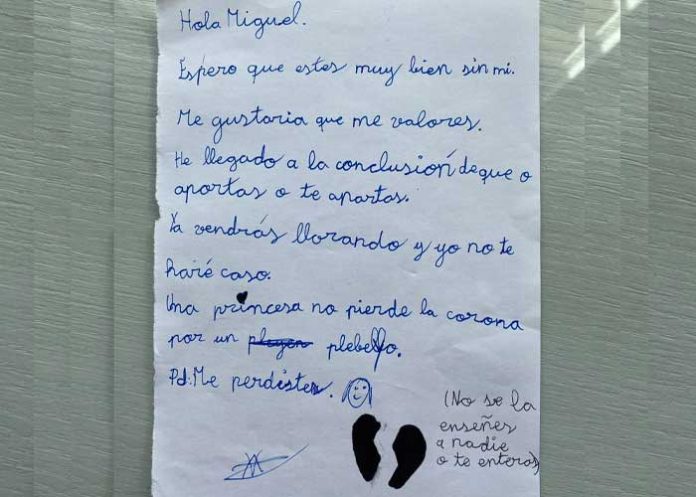 Hola Miguel.
Espero que estes muy bien sin mi.
Me gustaria que me valores.
He llegado a la conclusión de que o
aportas o te apartas.
Ya vendrás llorando y yo no te
haré caso.
Una princesa no pierde la corona
por un plebeyo.
Pd: Me perdistes.
(No se la
enseñes
a nadie
o te enteras)